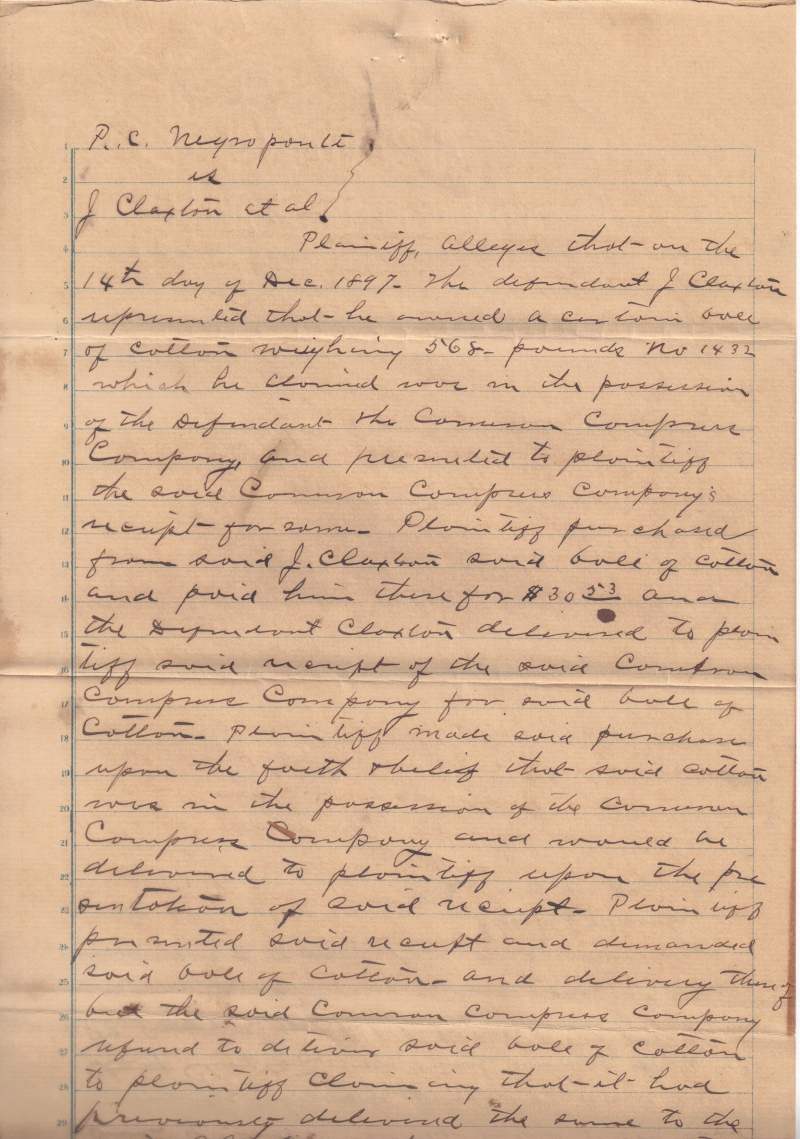 P. C. Negroponte
vs
J Claxton et al
Plaintiff, alleges that on the
14th day of Dec. 1897- The defendant J Claxton
represented that he owned a certain bale
of cotton weighing 568- pounds No 1432
which he claimed was in the possession
of the Defendant the Cameron Compress
Company, and presented to plaintiff
the said Cameron Compress Company's
receipt for same- Plaintiff purchased
from said J. Claxton said bale of cotton
and paid him there for $30 53 and
the Defendant Claxton delivered to plain
tiff said receipt of the said Cameron
Compress Company for said bale of
Cotton- Plaintiff made said purchase
upon the faith & belief that said cotton
was in the possession of the Cameron
Compress Company and would be
delivered to plaintiff upon the pre
sentation of said receipt- Plaintiff
presented said receipt and demanded
said bale of cotton- and delivery thereof
but the said Cameron Compress Company
refused to deliver said bale of cotton
to plaintiff claiming that it had
previously delivered the same to the